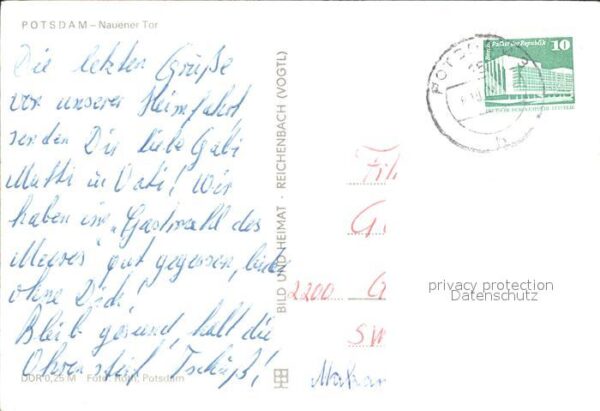 POTSDAM – Nauener Tor
Die letzten Grüße
vor unserer Heimfahrt
senden Dir liebe Gabi
Mutti u. Vati! Wir
haben im „Gastmahl des
Meeres" gut gegessen, leider
ohne Dich!
Bleib gesund, halt die
Ohren steif Tschüß!
DDR 0,25 M Foto: Potsdam
BILD UND HEIMAT · REICHENBACH (VOGTL)
Palast der Republik
10
POTSD
G.
2200 G
SW
privacy protection
Datenschutz